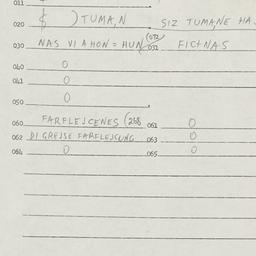 011
020 $ ) TUMA,N SIZ TUMANE HA
030 NAS VI AHON = HUN (032 031 FICHNAS
040 0
041 0
050 0
060 FARFLEJCENES (268 061 0
062 DI GREJSE FARFLEJCUNG 063 0
064 0 065 0